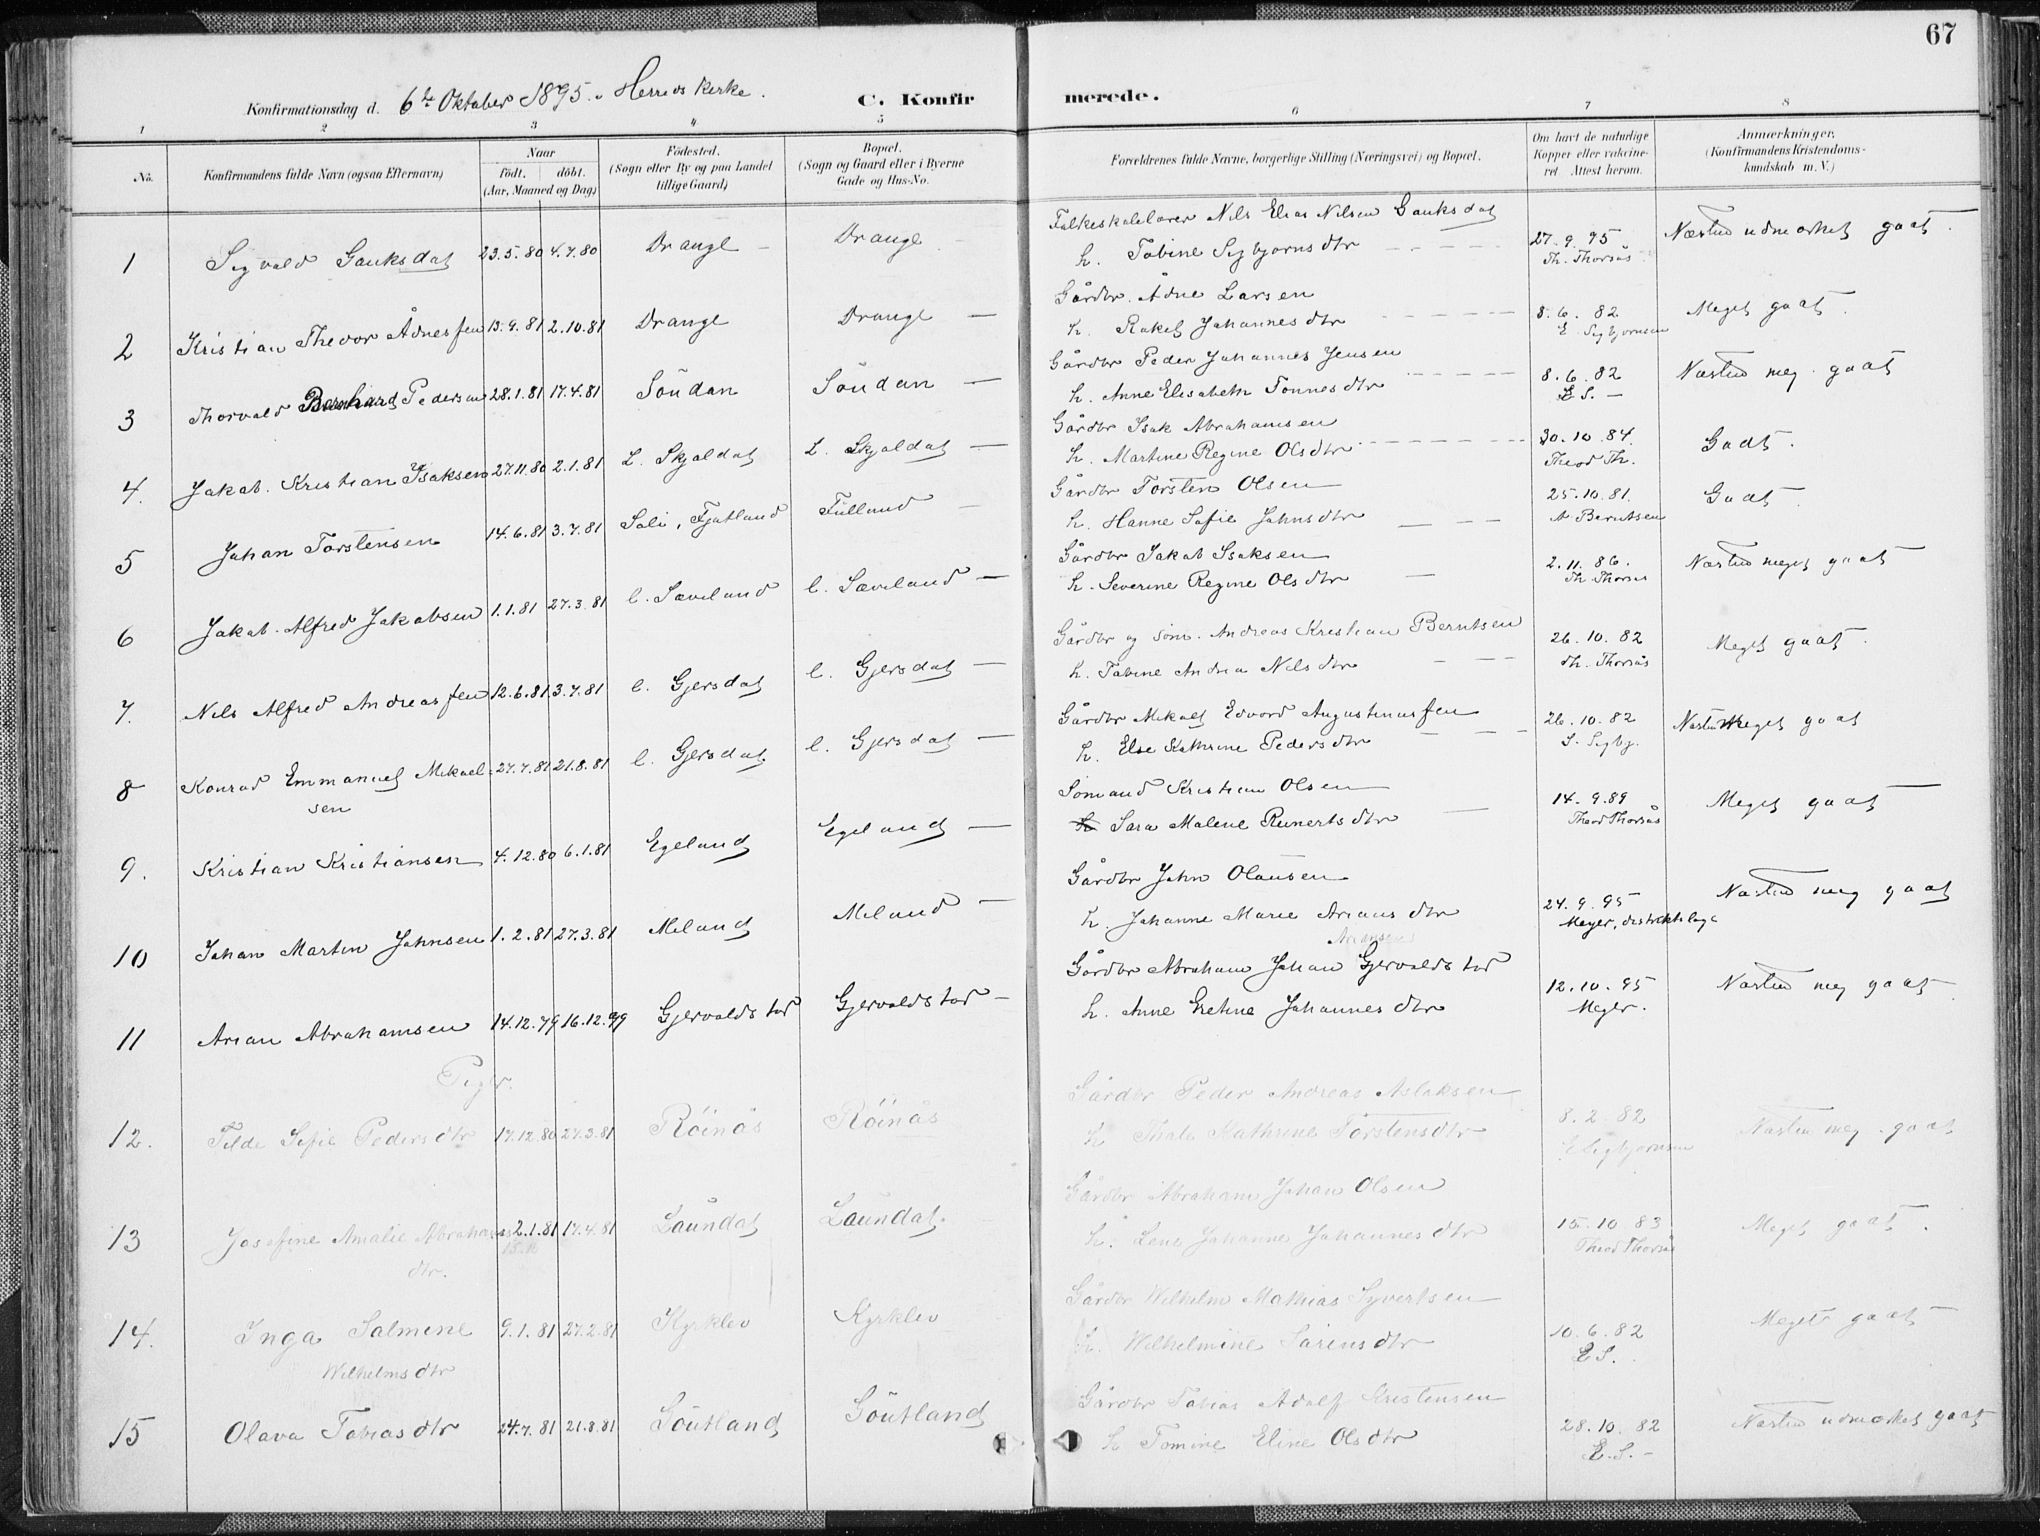 67
Konfirmationsdag d. 6te Oktober 1895. Herreds Kirke.
C. Konfirmerede.
1 2 3 4 5 6 7 8
No. Konfirmandens fulde Navn (ogsaa Efternavn) Naar födt. döbt. (Aar, Maaned og Dag) Födested. (Sogn eller By og paa Landet tillige Gaard) Bopæl. (Sogn og Gaard eller i Byerne Gade og Hus-No. Forældrenes fulde Navne, borgerlige Stilling (Næringsvei) og Bopæl. Om havt de naturlige Kopper eller vakcineret Attest herom. Anmærkninger. (Konfirmandens Kristendomskundskab m. V.)
Folkeskolelærer Nils Elias Nilsen Gauksdal
1 Sigvald Gauksdal 23.5.80 4.7.80 Drange Drange 27.9.95 Næsten udmærket godt.
h. Tobine Sigbjørnsdtr Th. Thorsås
Gårdbr. Ådne Larsen
2 Kristian Theodor Ådnessen 13.9.81 2.10.81 Drange Drange 8.6.82 Meget godt.
h. Rakel Johannesdtr E. Sigbjørnsen
Gårdbr Peder Johannes Jensen
3 Thorvald Bernhard Pedersen 28.1.81 17.4.81 Söudan Söudan 8.6.82 Næsten meg. godt
h. Anne Elisabeth Tønnesdtr E S.
Gårdbr Isak Abrahamsen
4. Jakob Kristian Isaksen 27.11.80 2.1.81 L. Skjoldal L. Skjoldal 30.10.84. Godt.
h. Martine Regine Olsdtr Theod Th.
Gårdbr Torsten Olsen
5 Johan Torstensen 14.6.81 3.7.81 Fjotland 25.10.81. Godt.
h. Hanne Sofie Johnsdtr A Berntsen
Gårdbr Jakob Isaksen
6 Jakob Alfred Jakobsen 1.1.81 27.3.81 l. Sæveland l. Sæveland 2.11.86. Næsten meget godt
h. Severine Regine Olsdtr Th Thorsås
Gårdbr og søm. Andreas Kristian Berntsen
7. Nils Alfred Andreassen 12.6.81 3.7.81 l. Gjersdal l. Gjersdal 26.10.82 Meget godt.
h. Tobine Andrea Nilsdtr Th. Thorsås
Gårdbr Mikael Edvard Augustinussen
8 Konrad Emmanuel Mikaelsen 27.7.81 21.8.81 l. Gjersdal l. Gjersdal 26.10.82 Næsten meget godt
h. Else Kathrine Pedersdtr S. Sigbj.
Sømand Kristian Olsen
9. Kristian Kristiansen 4.12.80 6.1.81 Egeland Egeland 14.9.89 Meget godt
Sara Malene Reinertsdtr Theod Thorsås
Gårdbr John Olausen
10 Johan Martin Johnsen 1.2.81 27.3.81 Meland Meland 24.9.95 Næsten meg godt
h. Johanne Marie Ariansdtr Meyer, distriktslæge
Ariansen
Gårdbr Abraham Johan Gjervoldstad
11 Arian Abrahamsen 14.12.79 16.12.99 Gjervoldstad Gjervoldstad 12.10.95 Næsten meg godt
h. Anne Gretine Johannesdtr Meyer.
Piger.
Gårdbr Peder Andreas Aslaksen
12. Tilde Sofie Pedersdtr 17.12.80 27.3.81 Röinås Röinås 8.2.82 Næsten meg. godt
h Thale Kathrine Torstensdtr E Sigbjørnsen
Gårdbr Abraham Johan Olsen
13 Josefine Amalie Abrahamsdtr. 2.1.81 17.4.81 Låundal Låundal 15.10.83 Meget godt.
h. Lene Johanne Johannesdtr Theod Thorsås
Gårdbr Wilhelm Mathias Syvertsen
14. Inga Salmine Wilhelmsdtr 9.1.81 27.2.81 Kyrklev Kyrklev 10.6.82 Meget godt
h. Wilhelmine Sørensdtr E S.
Gårdbr Tobias Adolf Kristensen
15 Olava Tobiasdtr 24.7.81 21.8.81 Göutland Göutland 28.10.82 Næsten udmærket godt
h Tomine Eline Olsdtr E. S.